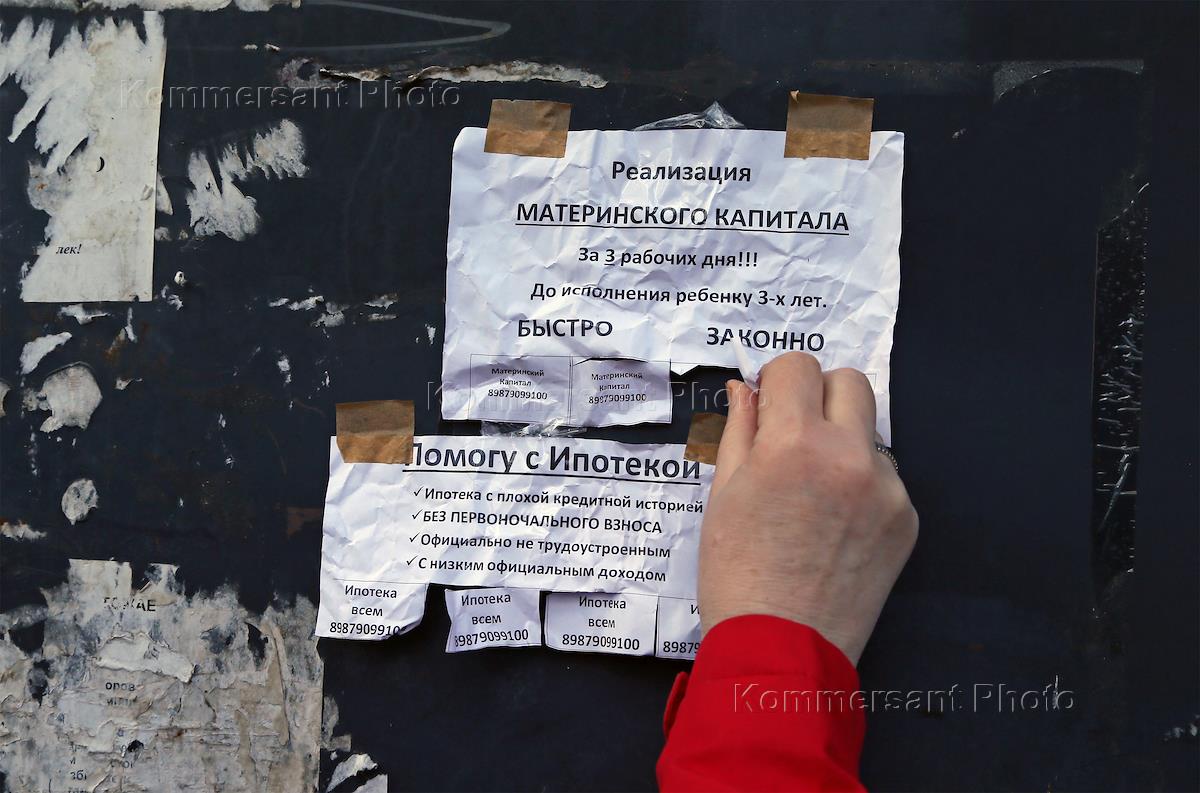 Kommersant Photo
лек!
Реализация
МАТЕРИНСКОГО КАПИТАЛА
За 3 рабочих дня!!!
До исполнения ребенку 3-х лет.
БЫСТРО ЗАКОННО
Материнский
Капитал
89879099100
Материнский
Капитал
89879099100
Kommersant Photo
Помогу с Ипотекой
✓Ипотека с плохой кредитной историей
✓БЕЗ ПЕРВОНОЧАЛЬНОГО ВЗНОСА
✓Официально не трудоустроенным
✓С низким официальным доходом
Ипотека
всем
8987909910
Ипотека
всем
89879099100
Ипотека
всем
89879099100
Kommersant Photo